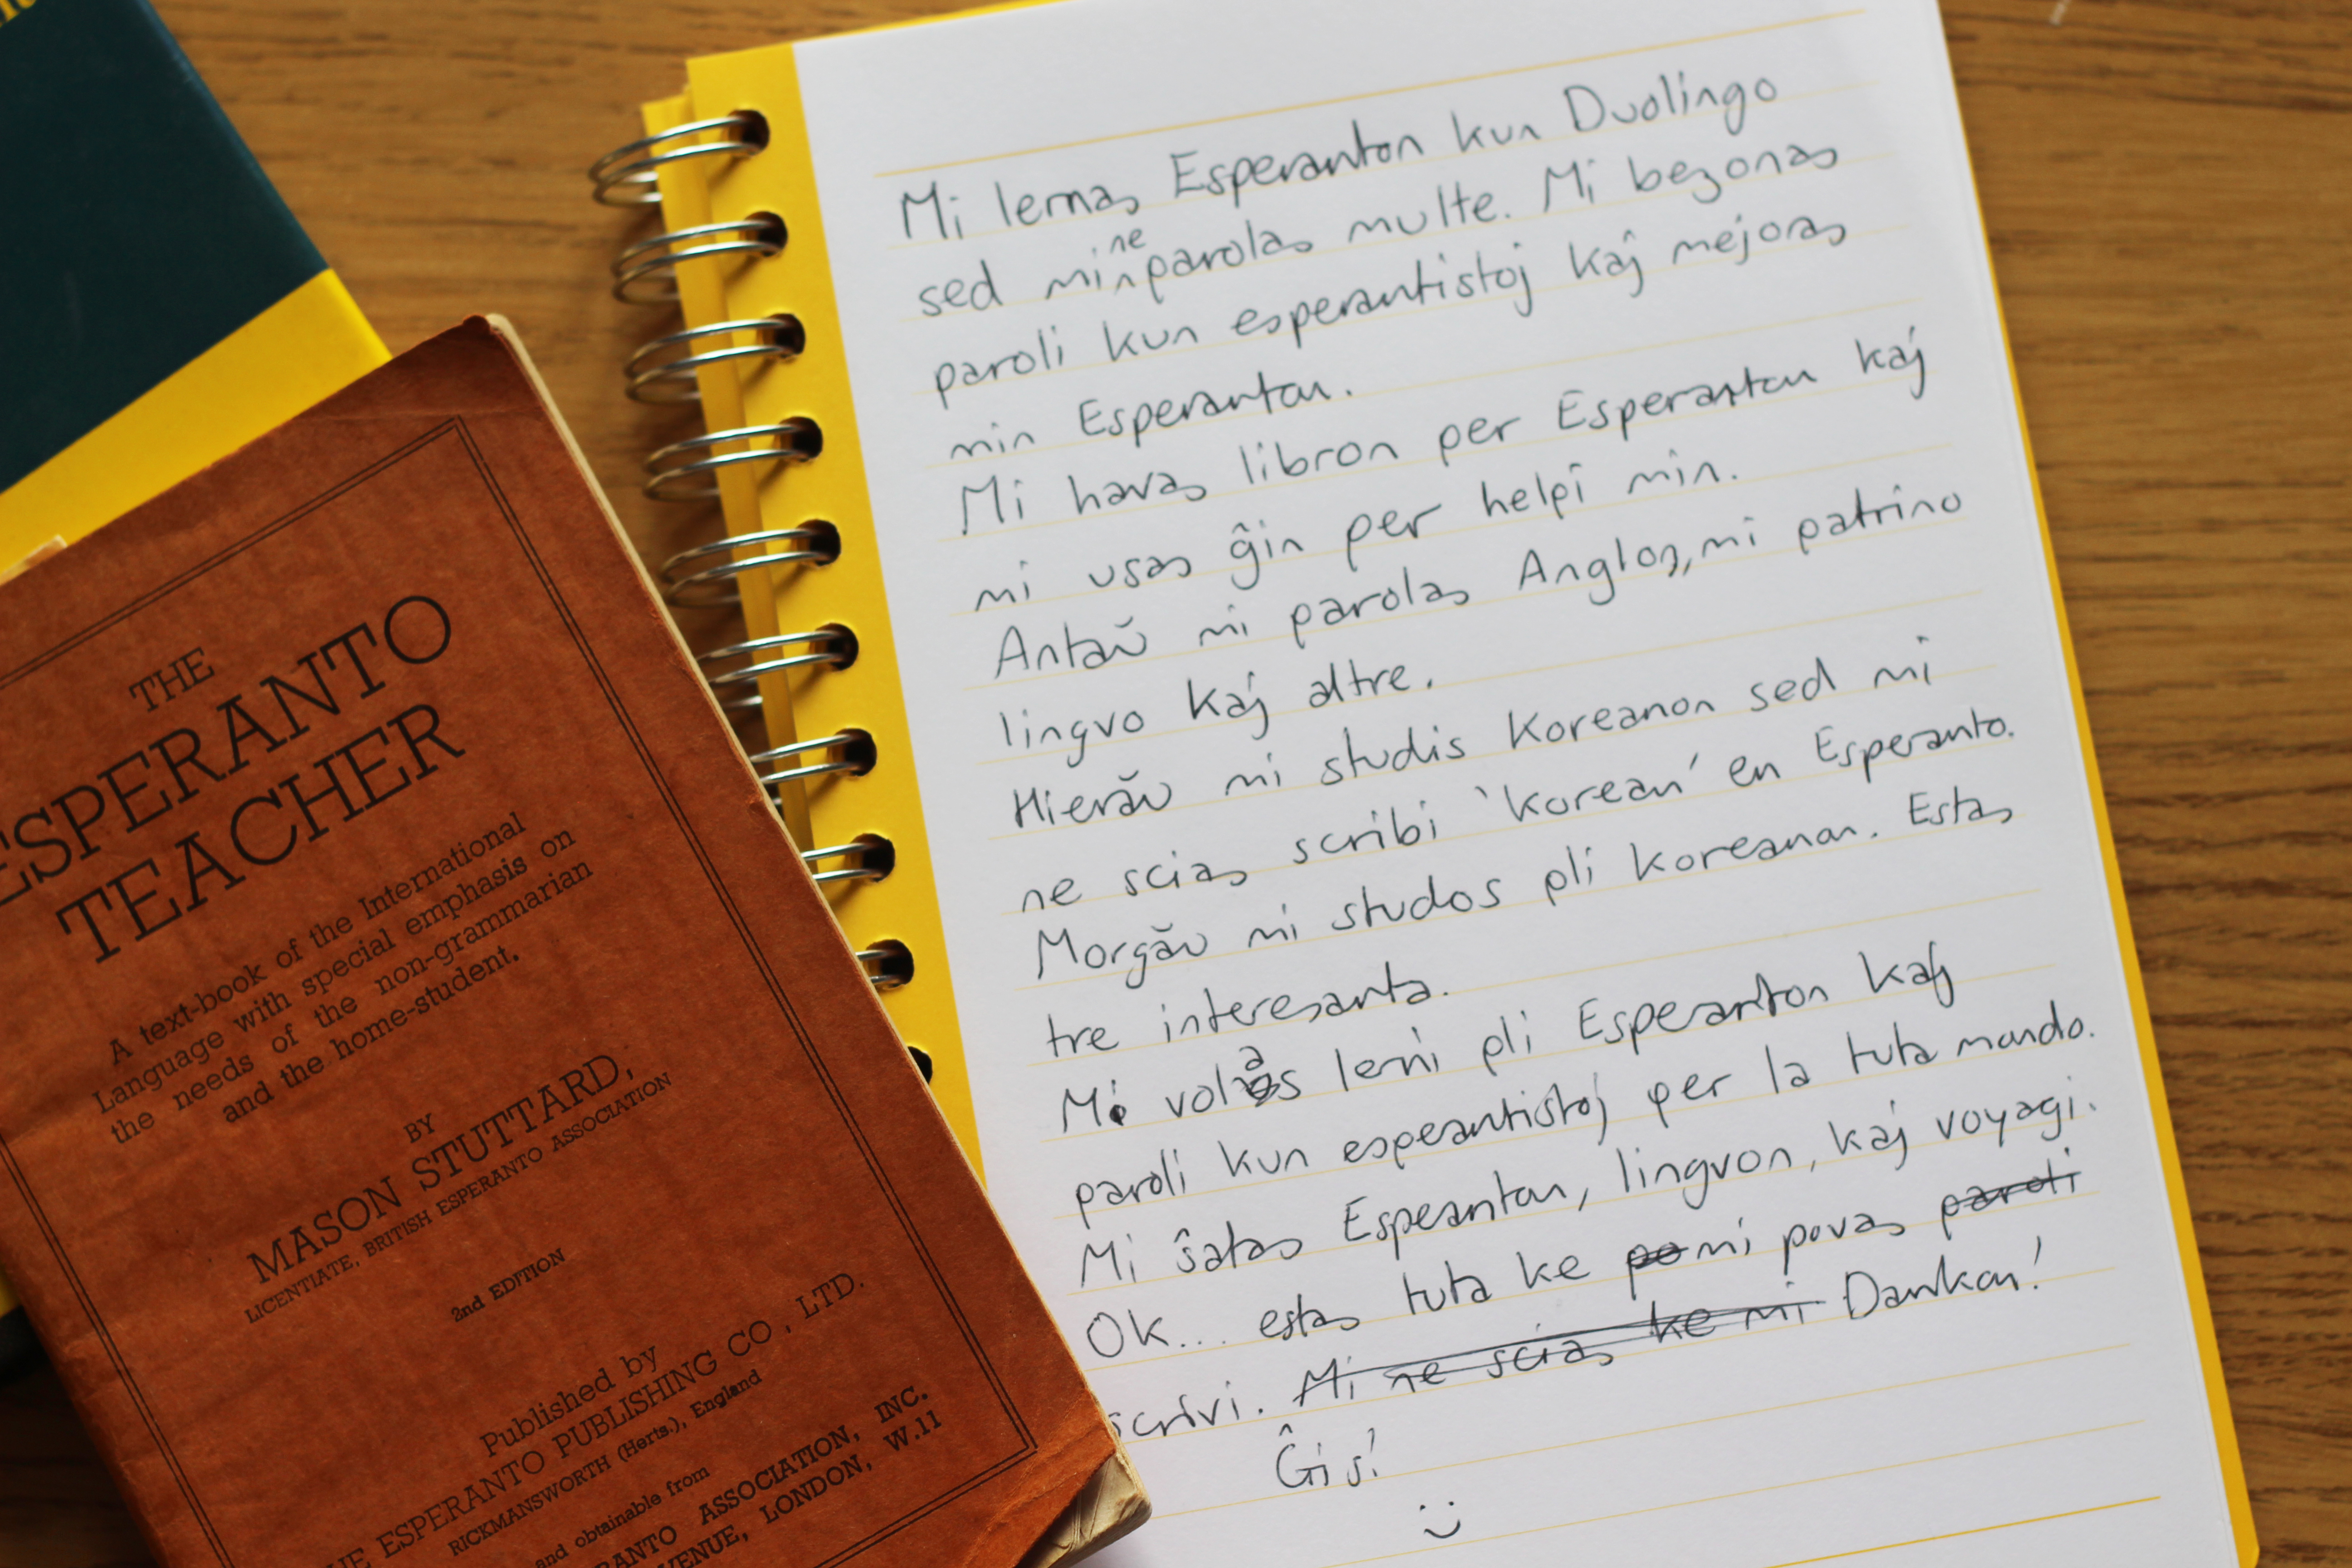 THE
ESPERANTO
TEACHER
A text-book of the International
Language with special emphasis on
the needs of the non-grammarian
and the home-student.
BY
MASON STUTTARD,
LICENTIATE, BRITISH ESPERANTO ASSOCIATION
2nd EDITION
Published by
THE ESPERANTO PUBLISHING CO., LTD.
RICKMANSWORTH (Herts.), England
and obtainable from
ASSOCIATION, INC.
LONDON, W.11
Mi lernas Esperanton kun Duolingo
sed mi ne parolas multe. Mi bezonas
paroli kun esperantistoj kaj mejoras
min Esperanton.
Mi havas libron per Esperanton kaj
mi usas ĝin per helpi min.
Antaŭ mi parolas Anglon, mi patrino
lingvo kaj altre.
Hierăv mi studis Koreanon sed mi
ne scias scribi 'Korean' en Esperanto.
Morgăv mi studos pli Koreanon. Estas
tre interesanta.
Mi volas lerni pli Esperanton kaj
paroli kun esperantistoj per la tuta mundo.
Mi ŝatas Esperanton, lingvon, kaj voyagi.
OK... estas tuta ke po mi povas paroli
scrivi. Mi ne scias ke mi Dankon!
Ĝis!